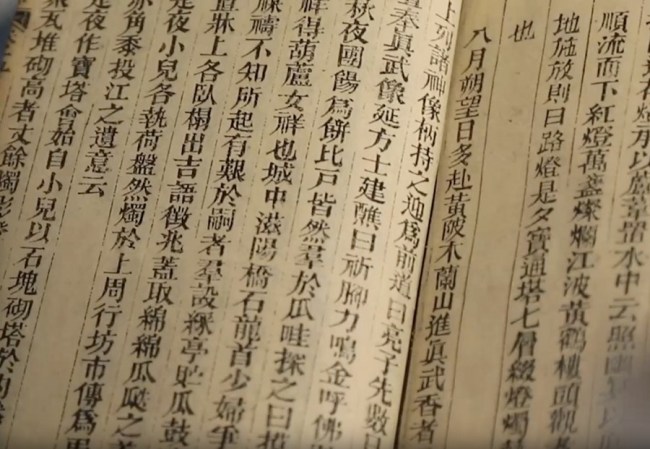 燈用以蘆葦置水中云照幽
順流而下紅燈萬盞燦爛江波黃鶴樓頭觀
地施放則曰路燈是夕寶通塔七層綴燈燭
也
八月朔望日多赴黃陂木蘭山進眞武香者
上列諸神像柄持之迎爲前道曰亮子先數日
奉眞武像延方士建醮曰祈腳力鳴金呼佛
秋夜團爲餅比戶皆然羣於瓜哇探之曰
祥得葫蘆女祥也城中滋陽橋石龍首少婦爭
禖禱不知所起有艱於嗣者羣設綵亭貯瓜鼓
置牀上各臥榻出吉語徵兆蓋取綿綿瓜瓞之
是夜小兒各執荷盤然燭於上周行坊市傳爲
亦角黍投江之遺意云
是夜作寶塔會始自小兒以石塊砌塔於
瓦堆砌高者丈餘燭影